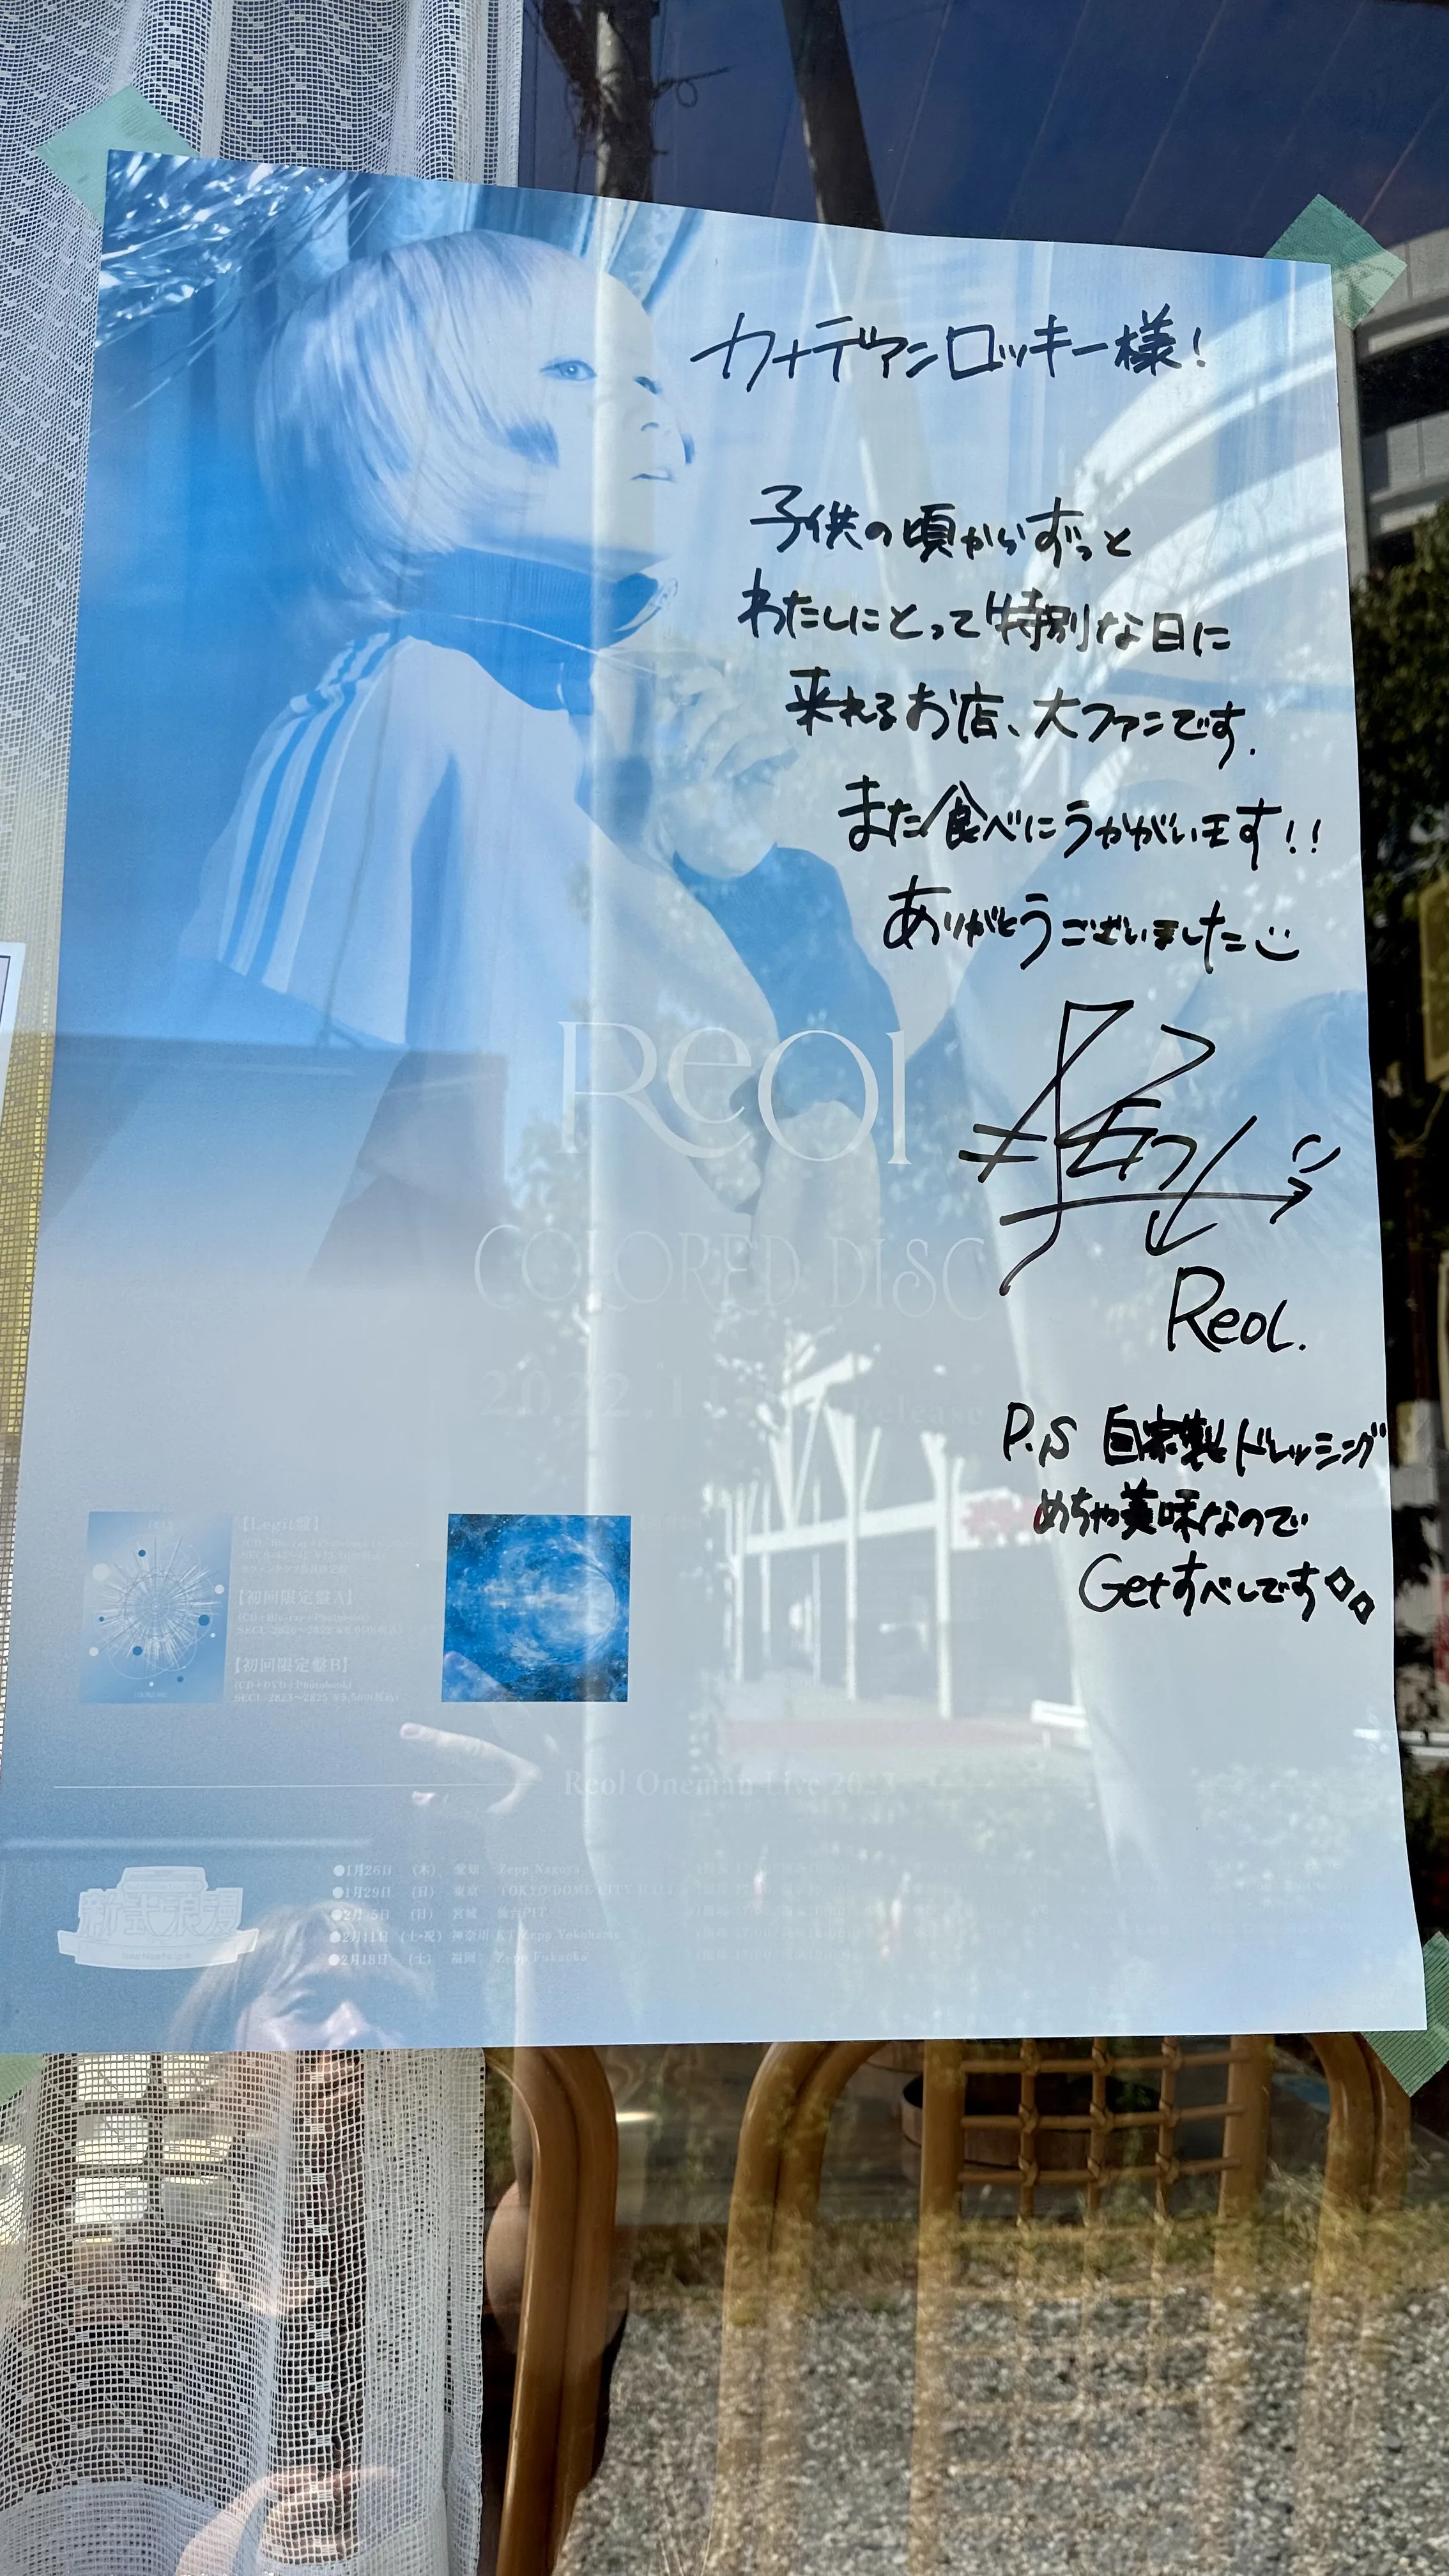 カナディアンロッキー様!
子供の頃からずっと
わたしにとって特別な日に
来れるお店、大ファンです.
また食べにうかがいます!!
ありがとうございました
Reol
COLORED DISC
Reol.
P.S 自家製ドレッシング
めちゃ美味なので
Getすべしです
【Legit盤】
【初回限定盤A】
【初回限定盤B】
(CD+DVD+Photobook)
Reol Oneman Live 2023
新式浪漫
●1月26日 (木) 愛知 Zepp Nagoya
●1月29日 (日) 東京 TOKYO DOME CITY HALL
●2月 5日 (日) 宮城 仙台PIT
●2月11日 (土・祝) 神奈川 KT Zepp Yokohama
●2月18日 (土) 福岡 Zepp Fukuoka